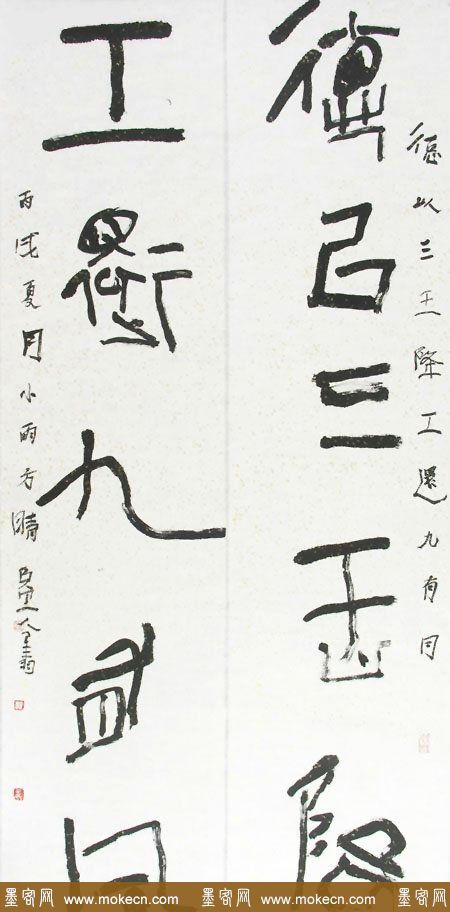 德以三王降工還九有同
德㠯三王降
工還九有同
丙戌夏月小雨方晴
墨客网 www.mokecn.com 墨客网 www.mokecn.com 墨客网